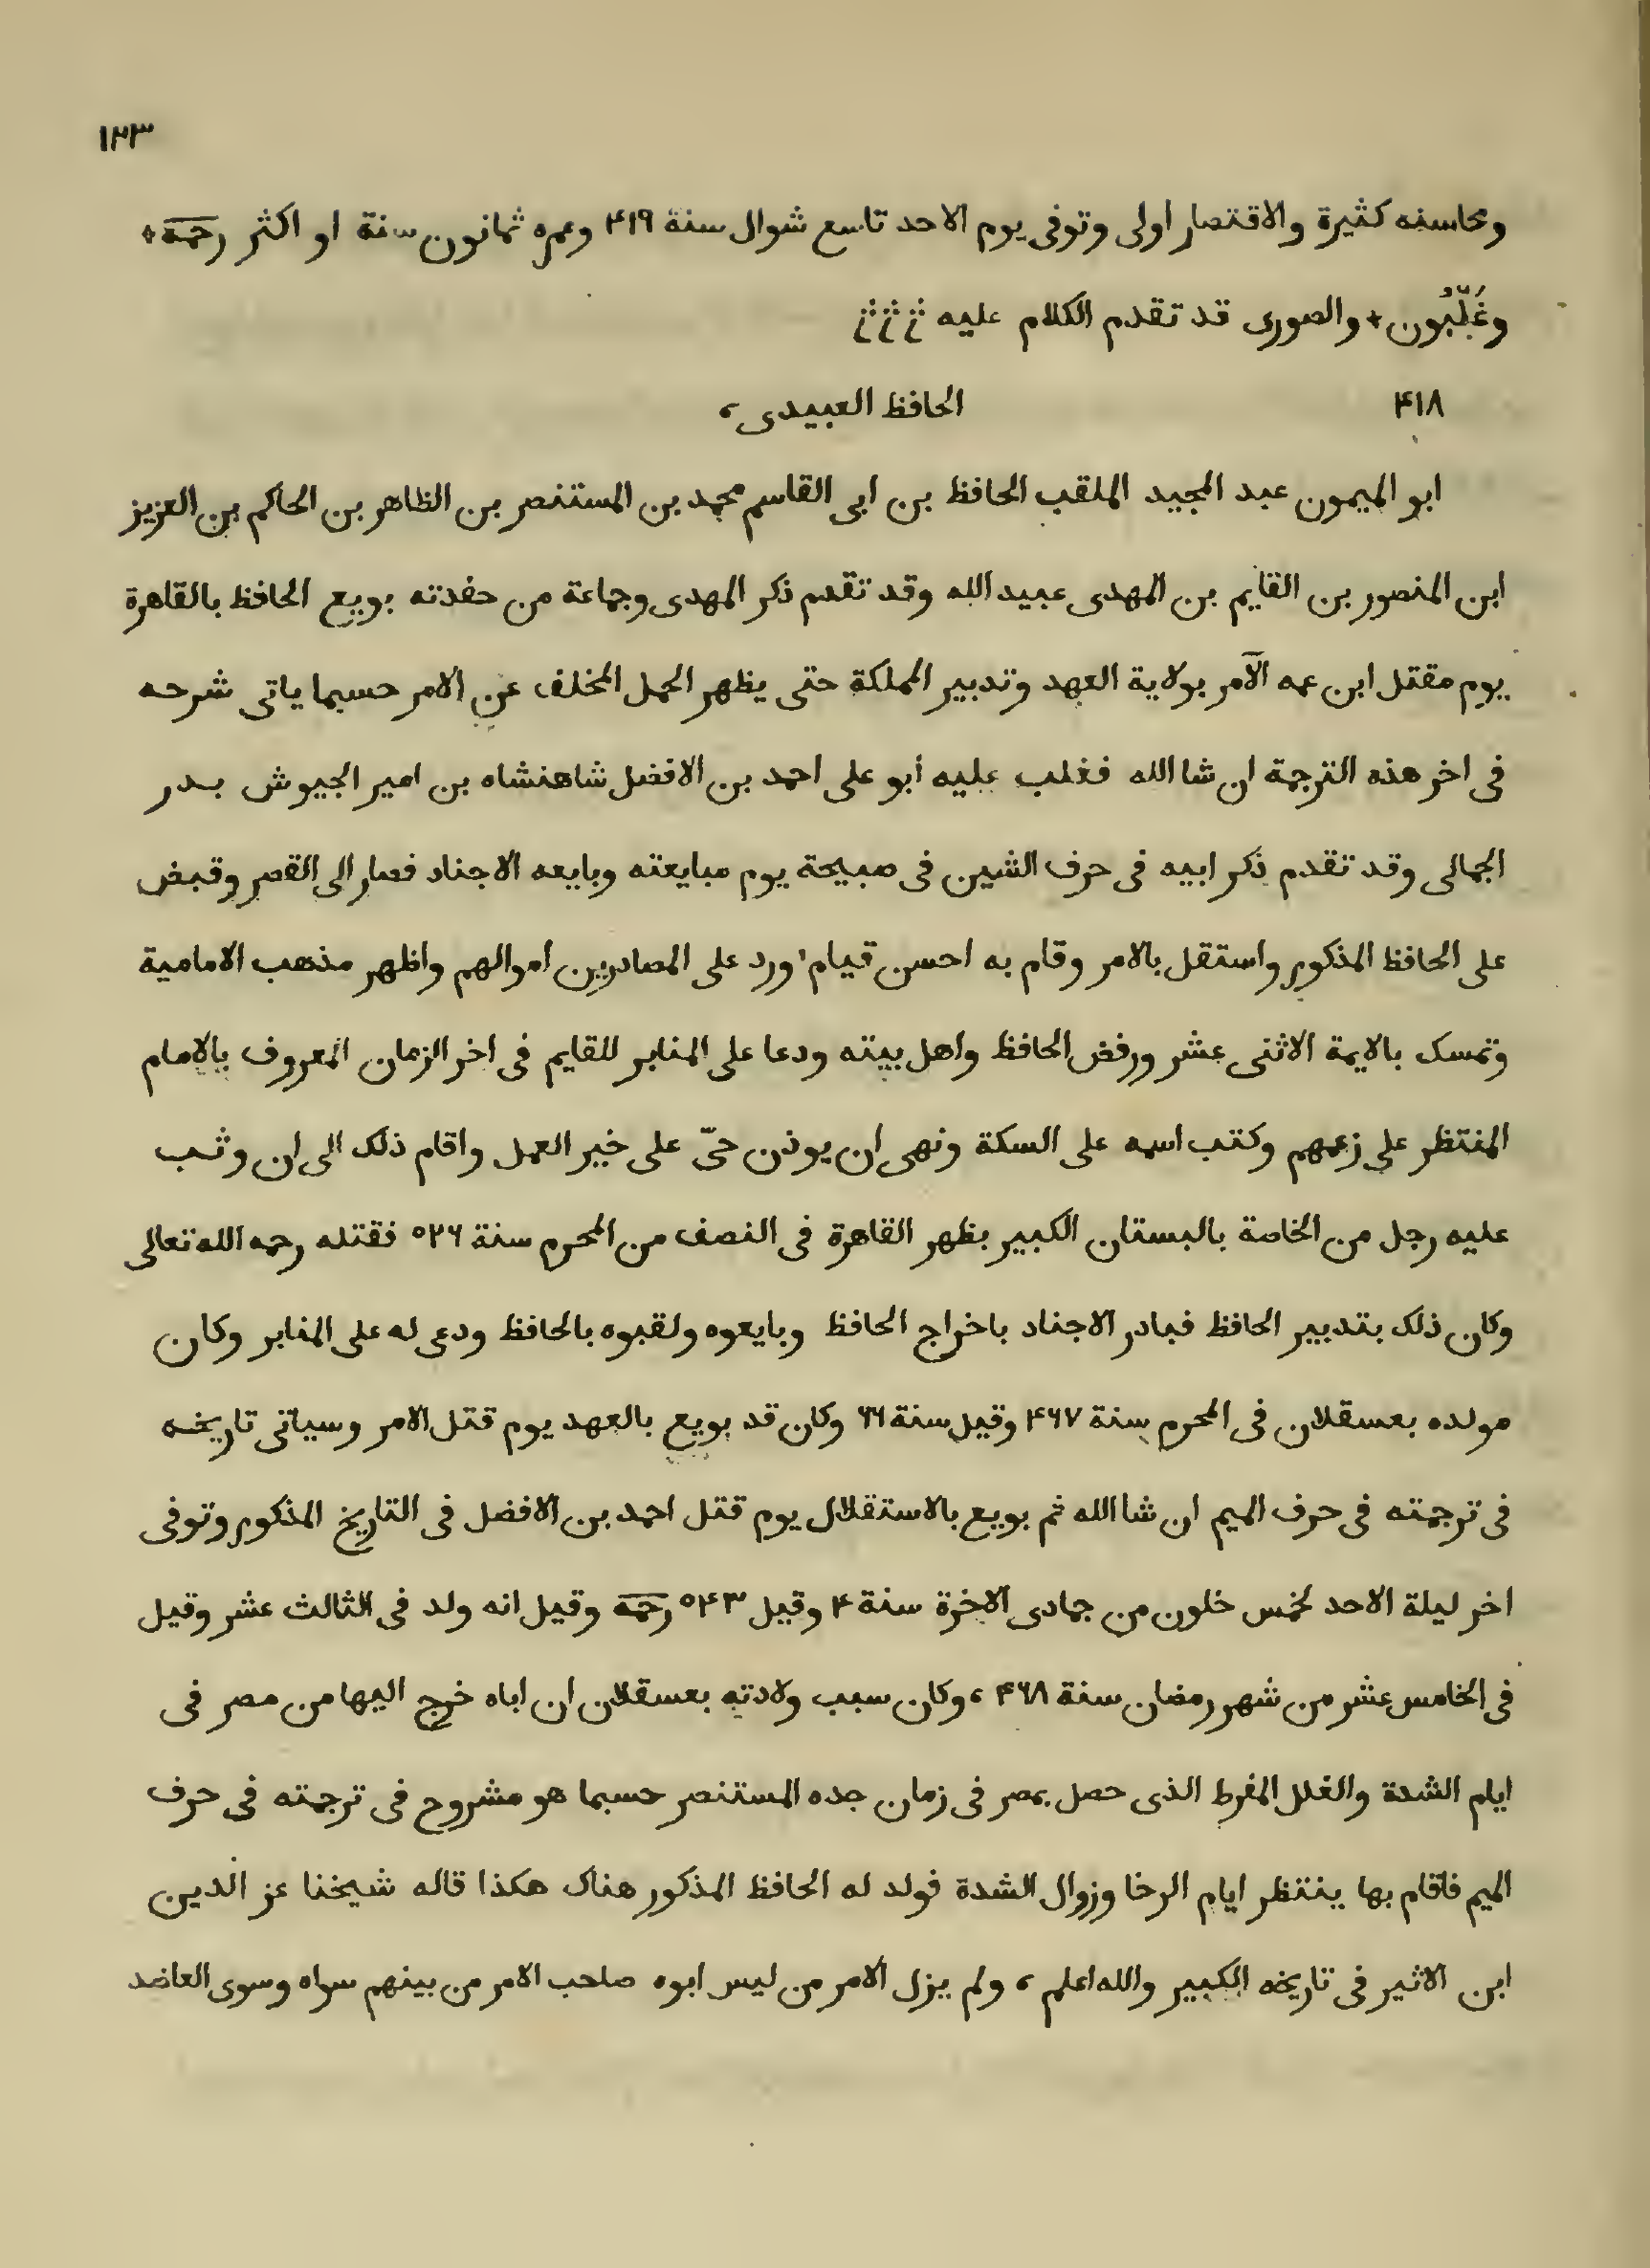 ١٢٣
ومحاسنه كثيرة والاقتصار اولى وتوفى يوم الاحد تاسع شوال سنة ۴١٩ وعمره ثمانون سنة او اكثر رحمه ٭
وغَلْبُون ٭ والصورى قد تقدم الكلام عليه
۴١٨ الحافظ العبيدى ،
ابو الميمون عبد المجيد الملقب الحافظ بن ابى القاسم محمد بن المستنصر بن الظاهر بن الحاكم بن العزيز
ابن المنصور بن القايم بن المهدى عبيد الله وقد تقدم ذكر المهدى وجماعة من حفدته بويع الحافظ بالقاهرة
يوم مقتل ابن عمه الآمر بولاية العهد وتدبير المملكة حتى يظهر الحمل المخلف عن الامر حسبما ياتى شرحه
فى اخر هذه الترجمة ان شا الله فغلب عليه أبو على احمد بن الافضل شاهنشاه بن امير الجيوش بدر
الجمالى وقد تقدم ذكر ابيه فى حرف الشين فى صبيحة يوم مبايعته وبايعه الاجناد فصار الى القصر وقبض
على الحافظ المذكور واستقل بالامر وقام به احسن قيام ورد على المصادرين اموالهم واظهر مذهب الامامية
وتمسك بالايمة الاثنى عشر ورفض الحافظ واهل بيته ودعا على المنابر للقايم فى اخر الزمان المعروف بالامام
المنتظر على زعمهم وكتب اسمه على السكة ونهى ان يوذن حىّ على خير العمل واقام ذلك الى ان وثب
عليه رجل من الخاصة بالبستان الكبير بظهر القاهرة فى النصف من المحرم سنة ٥٢٦ فقتله رحمه الله تعالى
وكان ذلك بتدبير الحافظ فبادر الاجناد باخراج الحافظ وبايعوه ولقبوه بالحافظ ودعى له على المنابر وكان
مولده بعسقلان فى المحرم سنة ۴٦٧ وقيل سنة ٦٦ وكان قد بويع بالعهد يوم قتل الامر وسياتى تاريخه
فى ترجمته فى حرف الميم ان شا الله ثم بويع بالاستقلال يوم قتل احمد بن الافضل فى التاريخ المذكور وتوفى
اخر ليلة الاحد لخمس خلون من جمادى الاخرة سنة ۴ وقيل ٥۴٣ رحمه وقيل انه ولد فى الثالث عشر وقيل
فى الخامس عشر من شهر رمضان سنة ۴٦٨ ، وكان سبب ولادته بعسقلان ان اباه خرج اليها من مصر فى
ايام الشدة والغلا المفرط الذى حصل بمصر فى زمان جده المستنصر حسبما هو مشروح فى ترجمته فى حرف
الميم فاقام بها ينتظر ايام الرخا وزوال الشدة فولد له الحافظ المذكور هناك هكذا قاله شيخنا عز الدين
ابن الاثير فى تاريخه الكبير والله اعلم ، ولم يزل الامر من ليس ابوه صاحب الامر من بينهم سواه وسوى العاضد